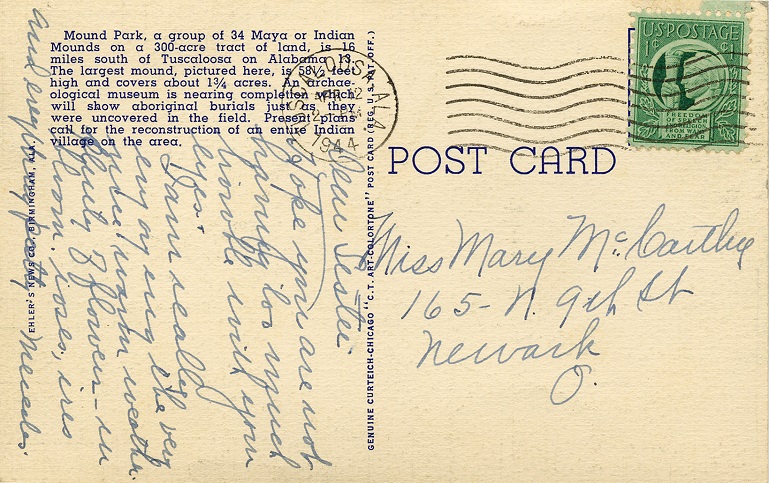 Mound Park, a group of 34 Maya or Indian
Mounds on a 300-acre tract of land, is 16
miles south of Tuscaloosa on Alabama 13.
The largest mound, pictured here, is 58½ feet
high and covers about 1¾ acres. An archae-
ological museum is nearing completion which
will show aboriginal burials just as they
were uncovered in the field. Present plans
call for the reconstruction of an entire Indian
village on the area.
EHLER'S NEWS CO., BIRMINGHAM, ALA.
GENUINE CURTEICH-CHICAGO "C.T. ART-COLORTONE" POST CARD (REG. U.S. PAT. OFF.)
ALA
1944
U.S. POSTAGE
1¢ ¢1
FREEDOM
OF SPEECH
AND RELIGION,
FROM WANT
AND FEAR
POST CARD
Miss Mary McCarthy
165 - N. 9th St
Newark
O.
Dear
Hope you are not
having too much
trouble with your
eyes.
I am really
enjoying the very
warm weather.
of flowers - in
bloom. roses, iris
and